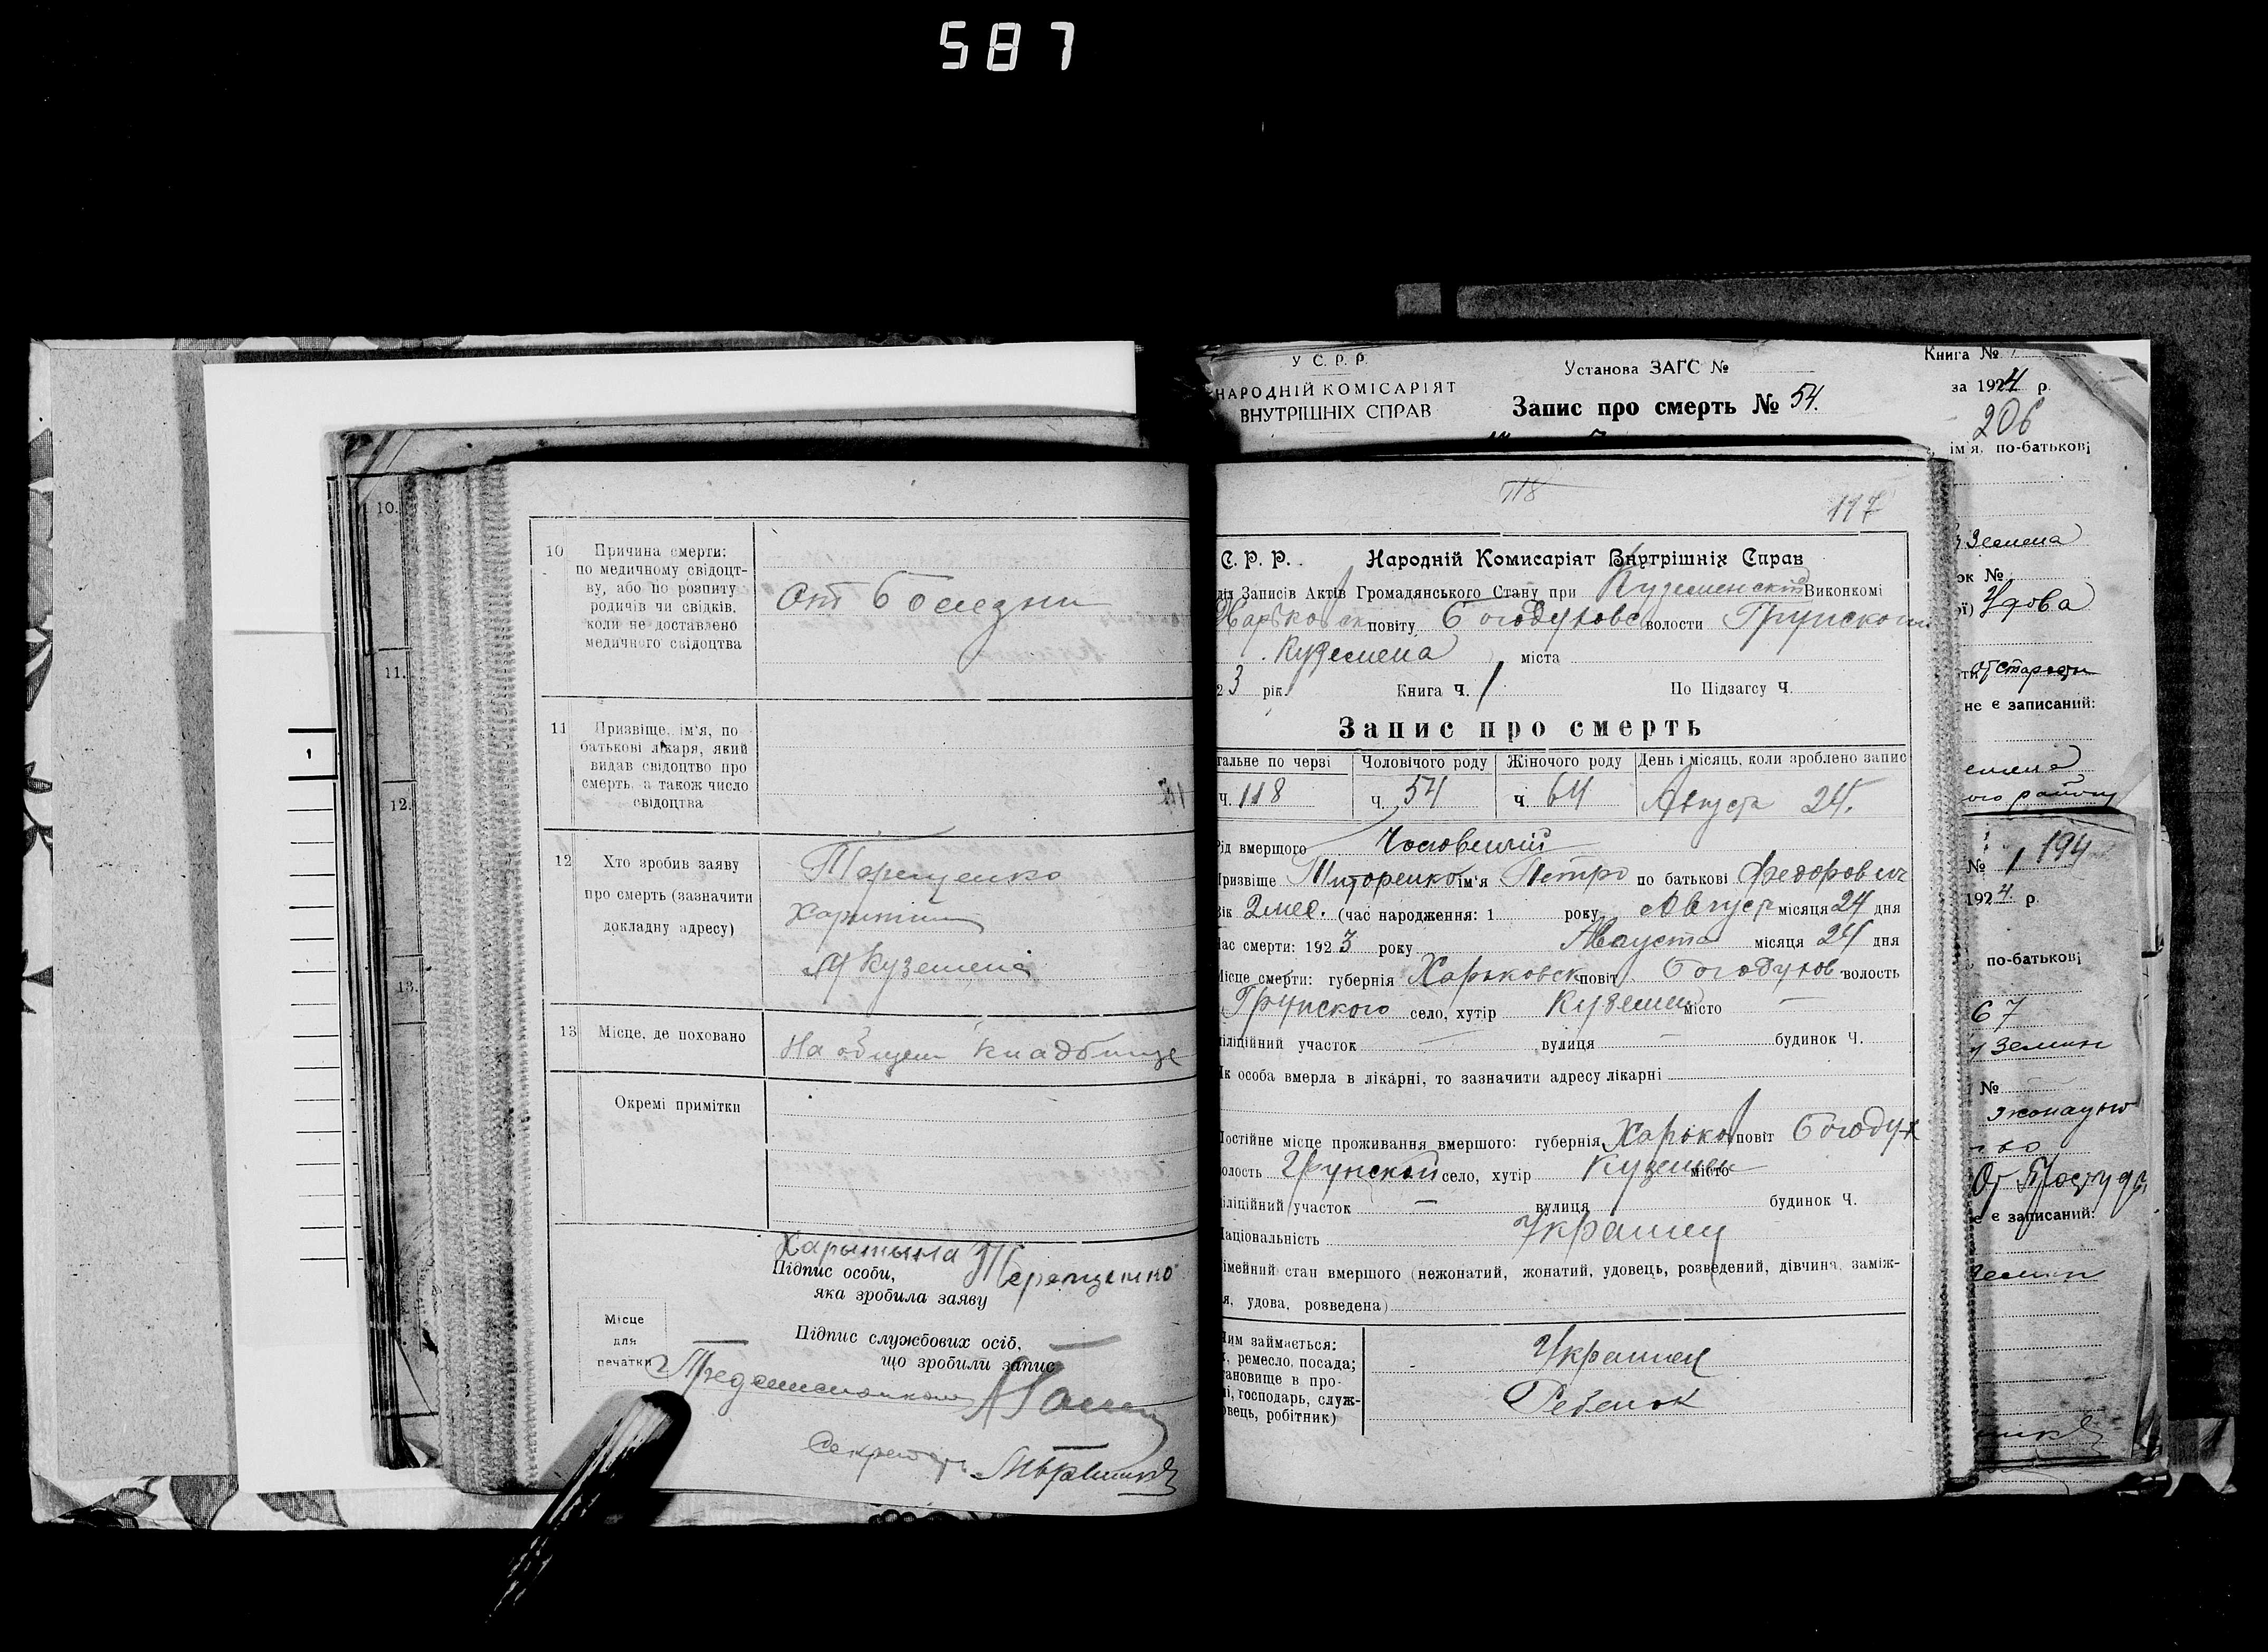 587
10.
11.
12.
13.
1
10 Причина смерти:
по медичному свідоцт-
ву, або по розпиту
родичів чи свідків,
коли не доставлено
медичного свідоцтва
От болезни
11 Призвіще, ім'я, по
батькові лікаря, який
видав свідоцтво про
смерть, а також число
свідоцтва
12 Хто зробив заяву
про смерть (зазначити
докладну адресу)
Терещенко
Харитин
Кузеmена
13 Місце, де поховано
На общем кладбище
Окремі примітки
Харытына Терещенко
Підпис особи,
яка зробила заяву
Місце
для
печатки
Підпис службових осіб,
що зробили запис
Секретарь
У С. Р. Р.
НАРОДНІЙ КОМІСАРІЯТ
ВНУТРІШНІХ СПРАВ
Установа ЗАГС №
Запис про смерть № 54.
Книга №
за 1924 р.
206
ім'я, по-батькові
118
117
С. Р. Р. Народній Комисаріят Внутрішніх Справ
діл Записів Актів Громадянського Стану при Куземенском Виконкомі
Харьковск повіту Богодуховс волости Грунского
Куземена міста
23 рік. Книга Ч. 1 По Підзагсу Ч.
Запис про смерть
гальне по черзі Чоловічого роду Жіночого роду День і місяць, коли зроблено запис
Ч. 118 Ч. 54 Ч. 64 Августа 24.
Рід вмершого
Призвіще Титоренко ім'я Петро по батькові Федорович
Вік 2 мес. (час народження: 1 року Август місяця 24 дня
Час смерти: 1923 року Августа місяця 24 дня
Місце смерти: губернія Харьковск повіт Богодухов волость
Грунского село, хутір Куземен місто —
міліційний участок — вулиця — будинок Ч.
Як особа вмерла в лікарні, то зазначити адресу лікарні
Постійне місце проживання вмершого: губернія Харьков повіт Богодух
волость Грунской село, хутір Куземен місто
міліційний участок — вулиця будинок Ч.
Національність Украинец
сімейний стан вмершого (нежонатий, жонатий, удовець, розведений, дівчина, заміж-
я, удова, розведена)
Чим займається:
, ремесло, посада;
тановище в про-
і, господарь, служ-
овець, робітник)
Украинец
Ребенок
Земена
ок №
ої) Удова
От старости
не є записаний:
емена
ого району
№ 1 194
1924 р.
по-батькові
67
Земин
№
От Простуды
е є записаний: